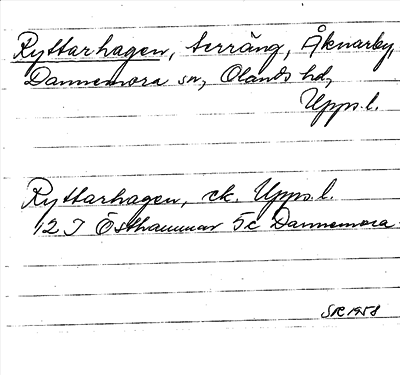 Ryttarhagen, terräng, Åknarby,
Dannemora sn, Olands hd,
Upps. l.
Ryttarhagen, ek. Upps. l.
12 I Östhammar 5c Dannemora
1958